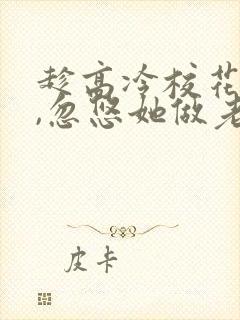 趁高冷校花
,忽悠她做老
皮卡